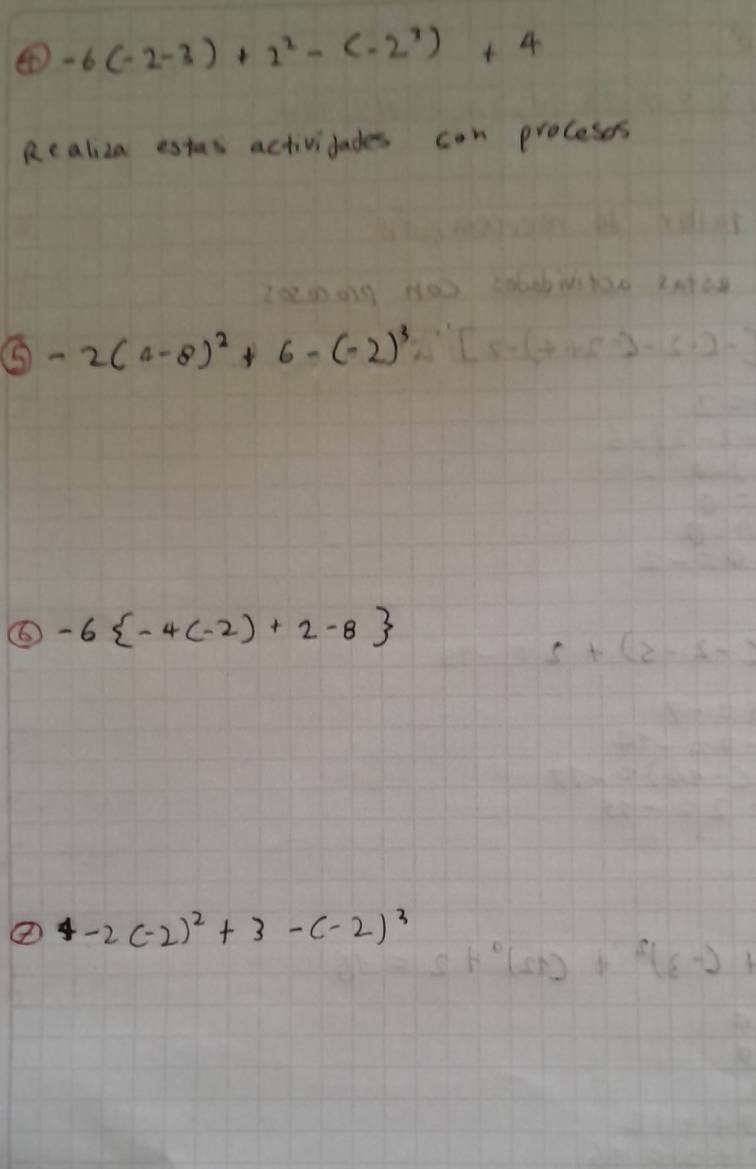 ④ -6(-2-3) + 2² - (-2³) + 4
Realiza estas actividades con procesos
⑤ - 2(4-8)² + 6 - (-2)³
⑥ -6{-4(-2) + 2-8}
⑦ 4-2(-2)² + 3 -(-2)³